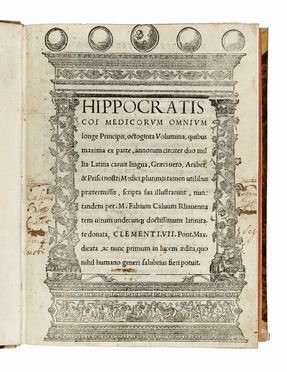 HIPPOCRATIS
COI MEDICORVM OMNIVM
longe Principis, octoginta Volumina, quibus
maxima ex parte, annorum circiter duo mil
lia Latina caruit lingua, Græci uero, Arabes,
& Prisci nostri Medici, plurimis tamen utilibus
prætermissis, scripta sua illustrarunt, nunc
tandem per. M. Fabium Caluum Rhauenna
tem uirum undecunq; doctissimum latinita
te donata, CLEMENTI. VII. Pont. Max.
dicata, ac nunc primum in lucem ædita, quo
nihil humano generi salubrius fieri potuit.